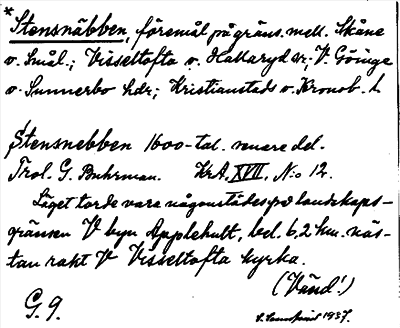 * Stensnäbben, föremål på gräns. mell. Skåne
o. Smål.; Visseltofta o. Hallaryd sr; V. Göinge
o. Sunnerbo hdr; Kristianstads o. Kronob. l.
Stensnebben 1600-tal. senare del.
Trol. G. Buhrman. KrA, XVII, N:o 12.
Läget torde vara någonstädes på landskaps-
gränsen V byn Applehult, bel. 6,2 km. näs-
tan rakt V Visseltofta kyrka.
(Vänd!)
G. 9.
1937.